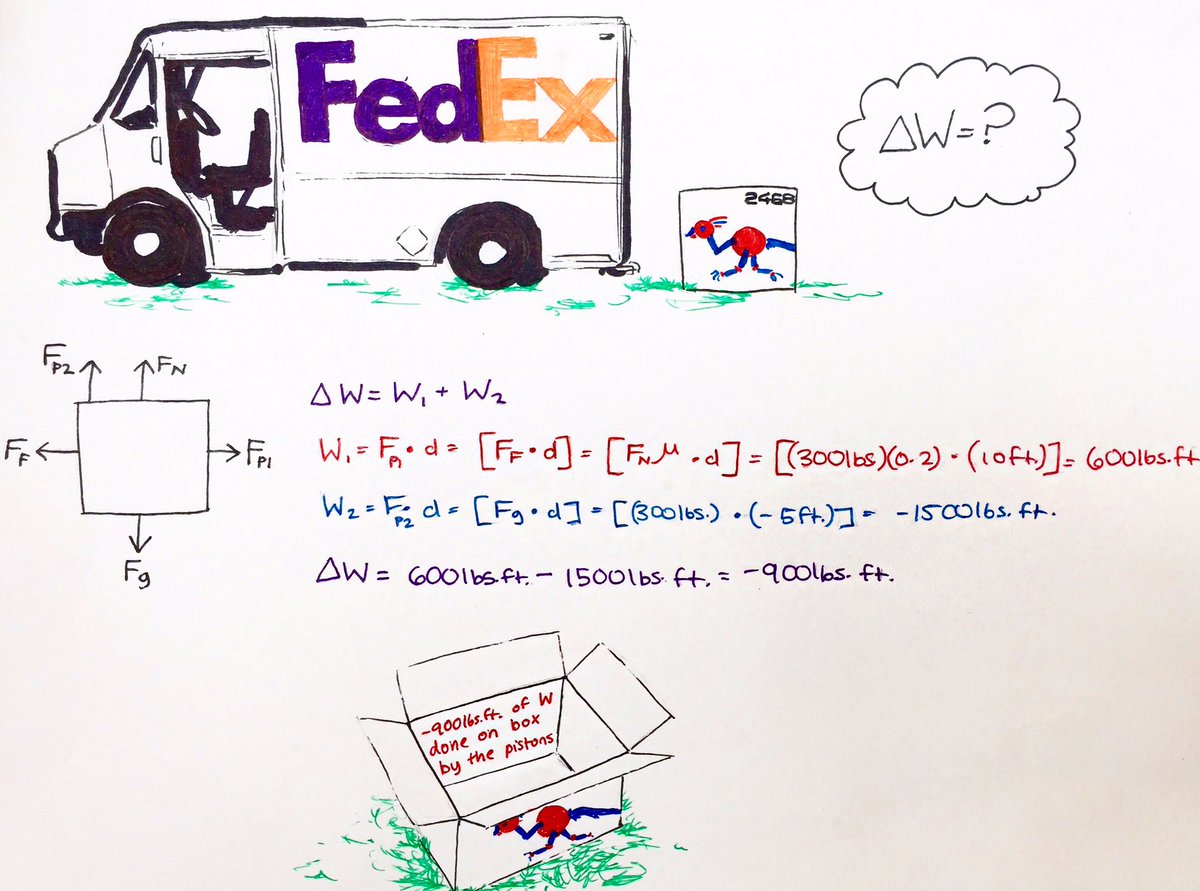 FedEx
ΔW=?
2468
F_P2
F_N
F_F
F_P1
F_g
ΔW = W₁ + W₂
W₁ = F_P1 • d = [F_F • d] = [F_N μ • d] = [(300lbs)(0.2) • (10ft)] = 600lbs.ft
W₂ = F_P2 • d = [Fg • d] = [(300lbs.) • (-5ft.)] = -1500lbs. ft.
ΔW = 600lbs.ft. - 1500lbs. ft. = -900lbs. ft.
-900lbs.ft. of W
done on box
by the pistons